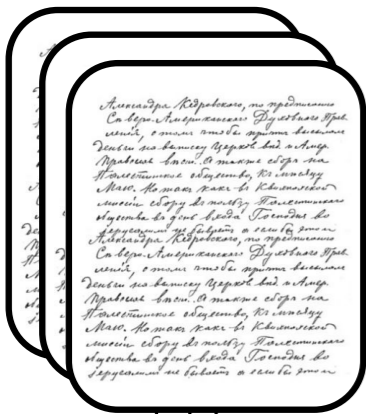 Александра Кедровскаго, по предписанію
Сѣверо-Американскаго Духовнаго Прав-
ленія, о томъ чтобы причтъ высылалъ
деньги на выписку Церков. вѣд. и Амер.
Правосл. вѣст. А также сбора на
Палестинское общество, къ мѣсяцу
Маю. Но такъ какъ въ Квихпахской
миссіи сбору въ пользу Палестинскаго
общества въ день входа Господня во
Іерусалимъ не бываетъ а если бы этотъ
Александра Кедровскаго, по предписанію
Сѣверо-Американскаго Духовнаго Прав-
ленія, о томъ чтобы причтъ высылалъ
деньги на выписку Церков. вѣд. и Амер.
Правосл. вѣст. А также сбора на
Палестинское общество, къ мѣсяцу
Маю. Но такъ какъ въ Квихпахской
миссіи сбору въ пользу Палестинскаго
общества въ день входа Господня во
Іерусалимъ не бываетъ а если бы этотъ